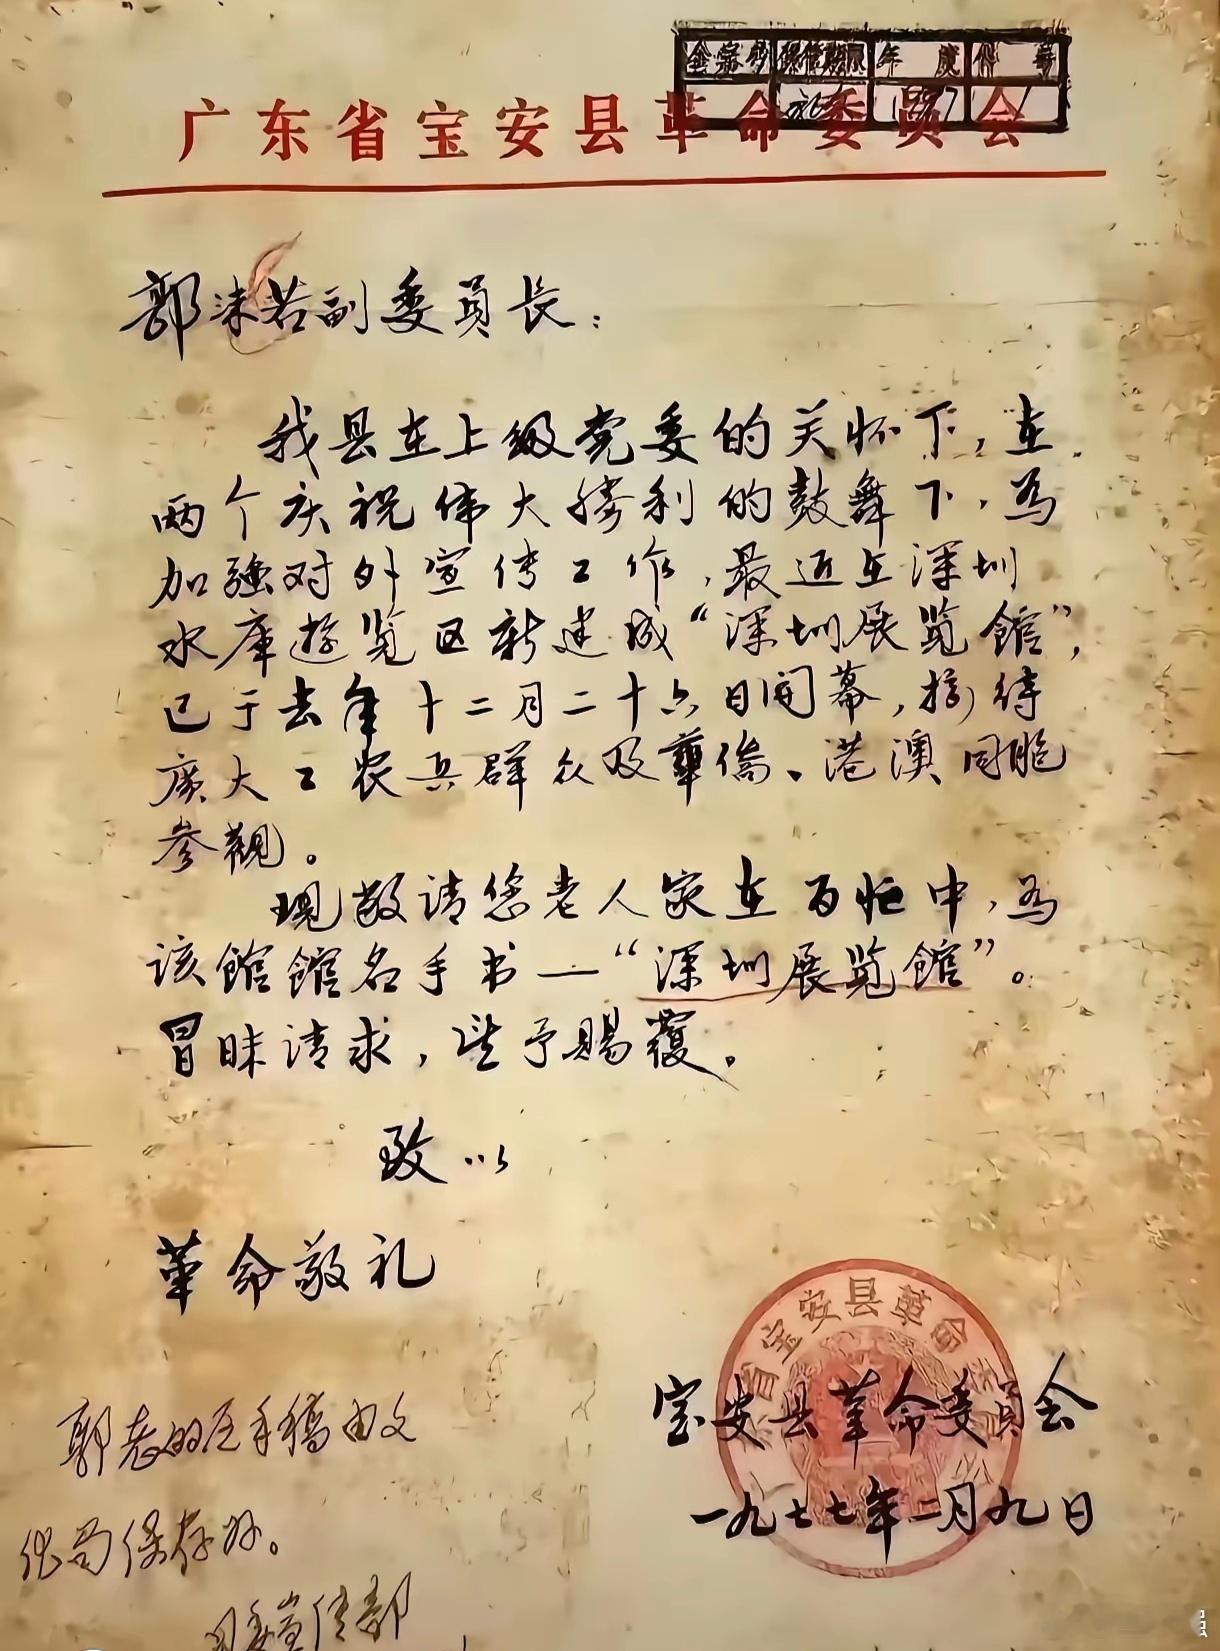 全宗号 保管期限 年度 件号
永久 1977 1
广东省宝安县革命委员会
郭沫若副委员长：
我县在上级党委的关怀下，在
两个庆祝伟大勝利的鼓舞下，为
加强对外宣传工作，最近在深圳
水库游览区新建成“深圳展览館”，
已于去年十二月二十六日開幕，接待
廣大工农兵群众及華僑、港澳同胞
参觀。
现敬请您老人家在百忙中，为
该館館名手书—“深圳展览館”。
冒昧请求，望予賜覆。
致以
革命敬礼
宝安县革命委员会
一九七七年二月九日
省宝安县革命
郭老的手稿由文
化局保存好。
委宣传部